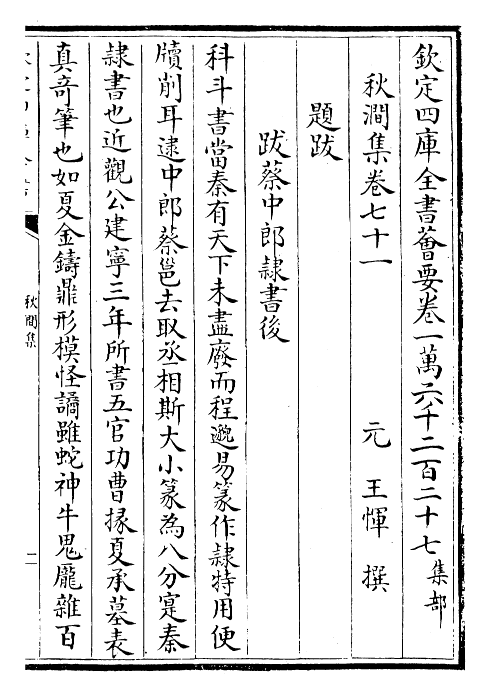 欽定四庫全書薈要卷一萬六千二百二十七集部
秋澗集卷七十一
元 王惲 撰
題跋
跋蔡中郎隸書後
科斗書當秦有天下未盡廢而程邈易篆作隸特用便
牘削耳逮中郎蔡邕去取丞相斯大小篆為八分寔秦
隸書也近觀公建寧三年所書五官功曹掾夏承墓表
真奇筆也如夏金鑄鼎形模怪譎雖蛇神牛鬼厖雜百
秋澗集
二